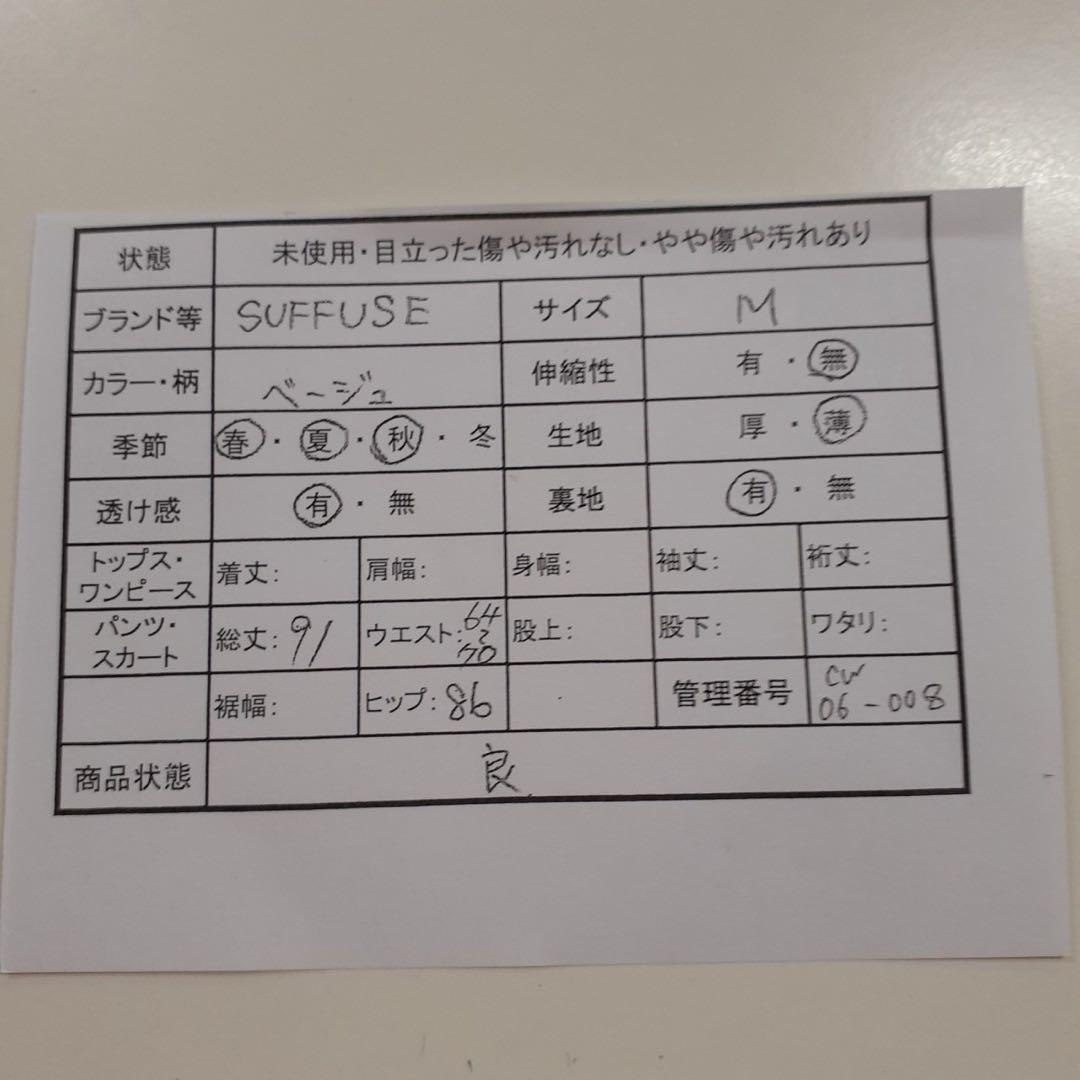 状態 未使用・目立った傷や汚れなし・やや傷や汚れあり
ブランド等 SUFFUSE サイズ M
カラー・柄 ベージュ 伸縮性 有・無
季節 春・夏・秋・冬 生地 厚・薄
透け感 有・無 裏地 有・無
トップス・ワンピース 着丈: 肩幅: 身幅: 袖丈: 裄丈:
パンツ・スカート 総丈: 91 ウエスト: 64〜70 股上: 股下: ワタリ:
裾幅: ヒップ: 86 管理番号 CW 06-008
商品状態 良